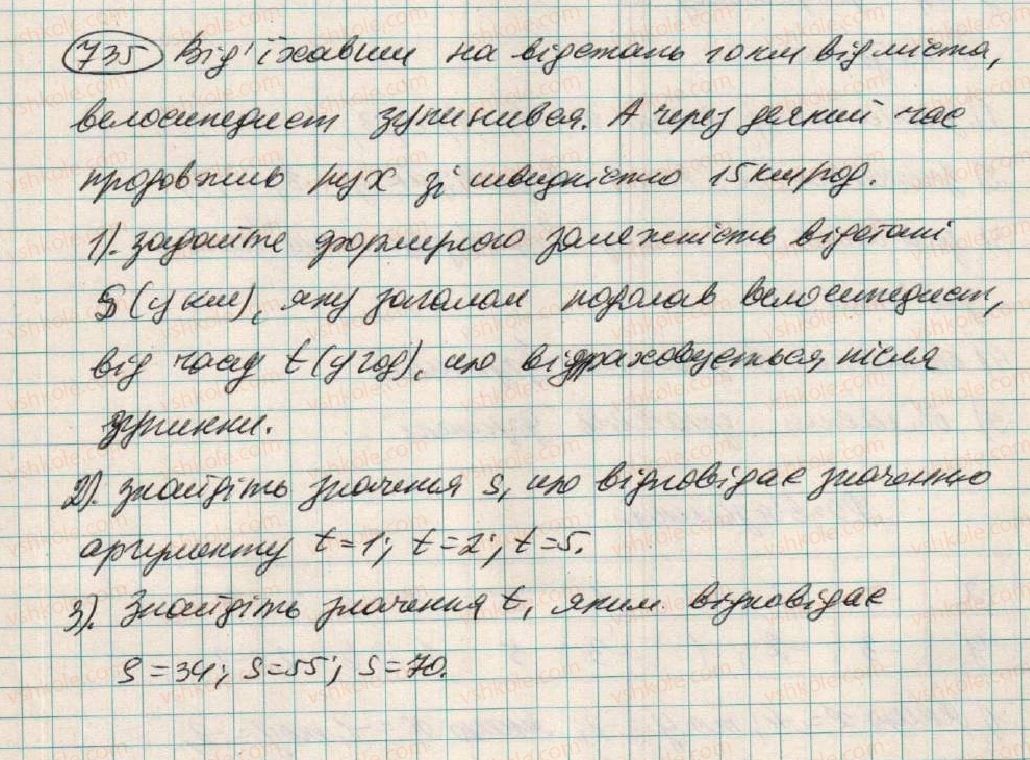 735 Від'їхавши на відстань 10 км від міста,
велосипедист зупинився. А через деякий час
продовжив рух зі швидкістю 15 км/год.
1). Задайте формулою залежність відстані
S (у км), яку загалом подолав велосипедист,
від часу t (у год), що відраховується після
зупинки.
2). Знайдіть значення s, що відповідає значенню
аргументу t=1; t=2; t=5.
3). Знайдіть значення t, яким відповідає
S=34; S=55; S=70.